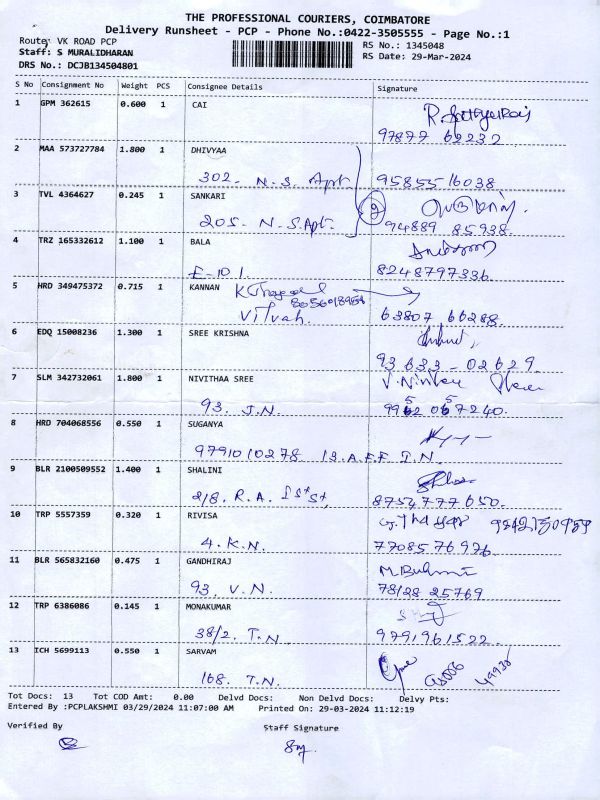 THE PROFESSIONAL COURIERS, COIMBATORE
Delivery Runsheet - PCP - Phone No.:0422-3505555 - Page No.:1
Route: VK ROAD PCP
RS No.: 1345048
Staff: S MURALIDHARAN
RS Date: 29-Mar-2024
DRS No.: DCJB134504801
S No Consignment No Weight PCS Consignee Details Signature
1 GPM 362615 0.600 1 CAI
97877 62232
2 MAA 573727784 1.800 1 DHIVYAA
302. N.S. Apt 9585516038
3 TVL 4364627 0.245 1 SANKARI
205. N.S.Apt. 2 94889 85938.
4 TRZ 165332612 1.100 1 BALA
E-101 8248797336
5 HRD 349475372 0.715 1 KANNAN
63807 66288
6 EDQ 15008236 1.300 1 SREE KRISHNA
93633-02629
7 SLM 342732061 1.800 1 NIVITHAA SREE
93. J.N.
8 HRD 704068556 0.550 1 SUGANYA
9791010278
9 BLR 2100509552 1.400 1 SHALINI
2/8. R.A. 1st St, 8754777650.
10 TRP 5557359 0.320 1 RIVISA
4. K.N. 7708576926
11 BLR 565832160 0.475 1 GANDHIRAJ
93. V.N. 78128 25769
12 TRP 6386086 0.145 1 MONAKUMAR
38/2. T.N. 9791961522
13 ICH 5699113 0.550 1 SARVAM
168. T.N.
Tot Docs: 13 Tot COD Amt: 0.00 Delvd Docs: Non Delvd Docs: Delvy Pts:
Entered By :PCPLAKSHMI 03/29/2024 11:07:00 AM Printed On: 29-03-2024 11:12:19
Verified By
Staff Signature